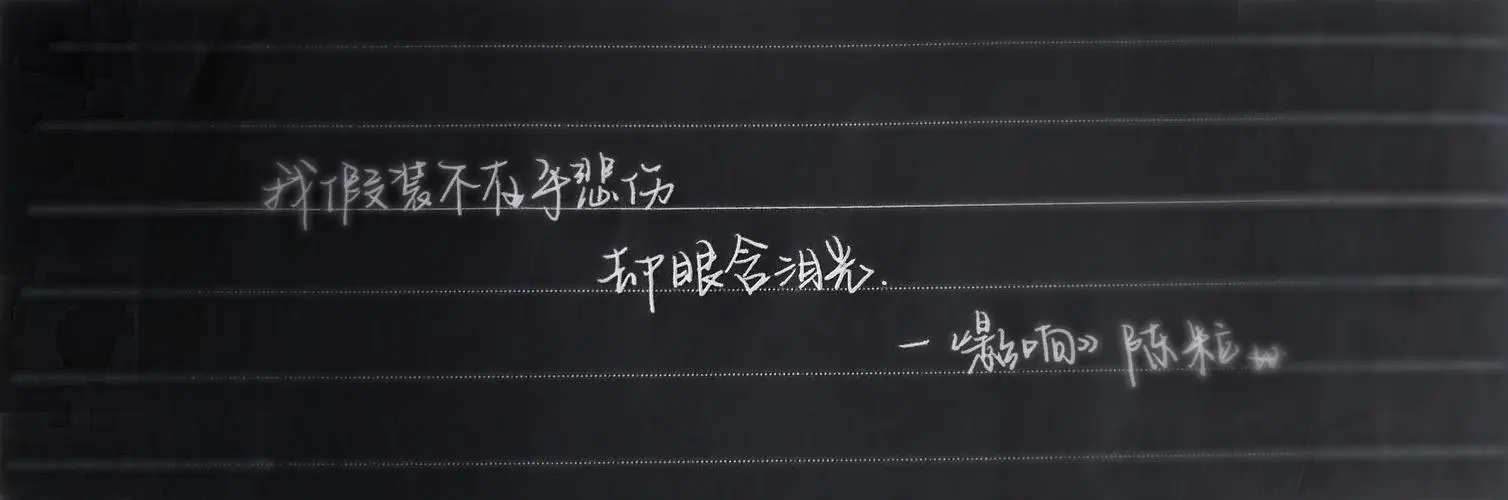 我假装不在乎悲伤
却眼含泪光.
—《影响》陈粒